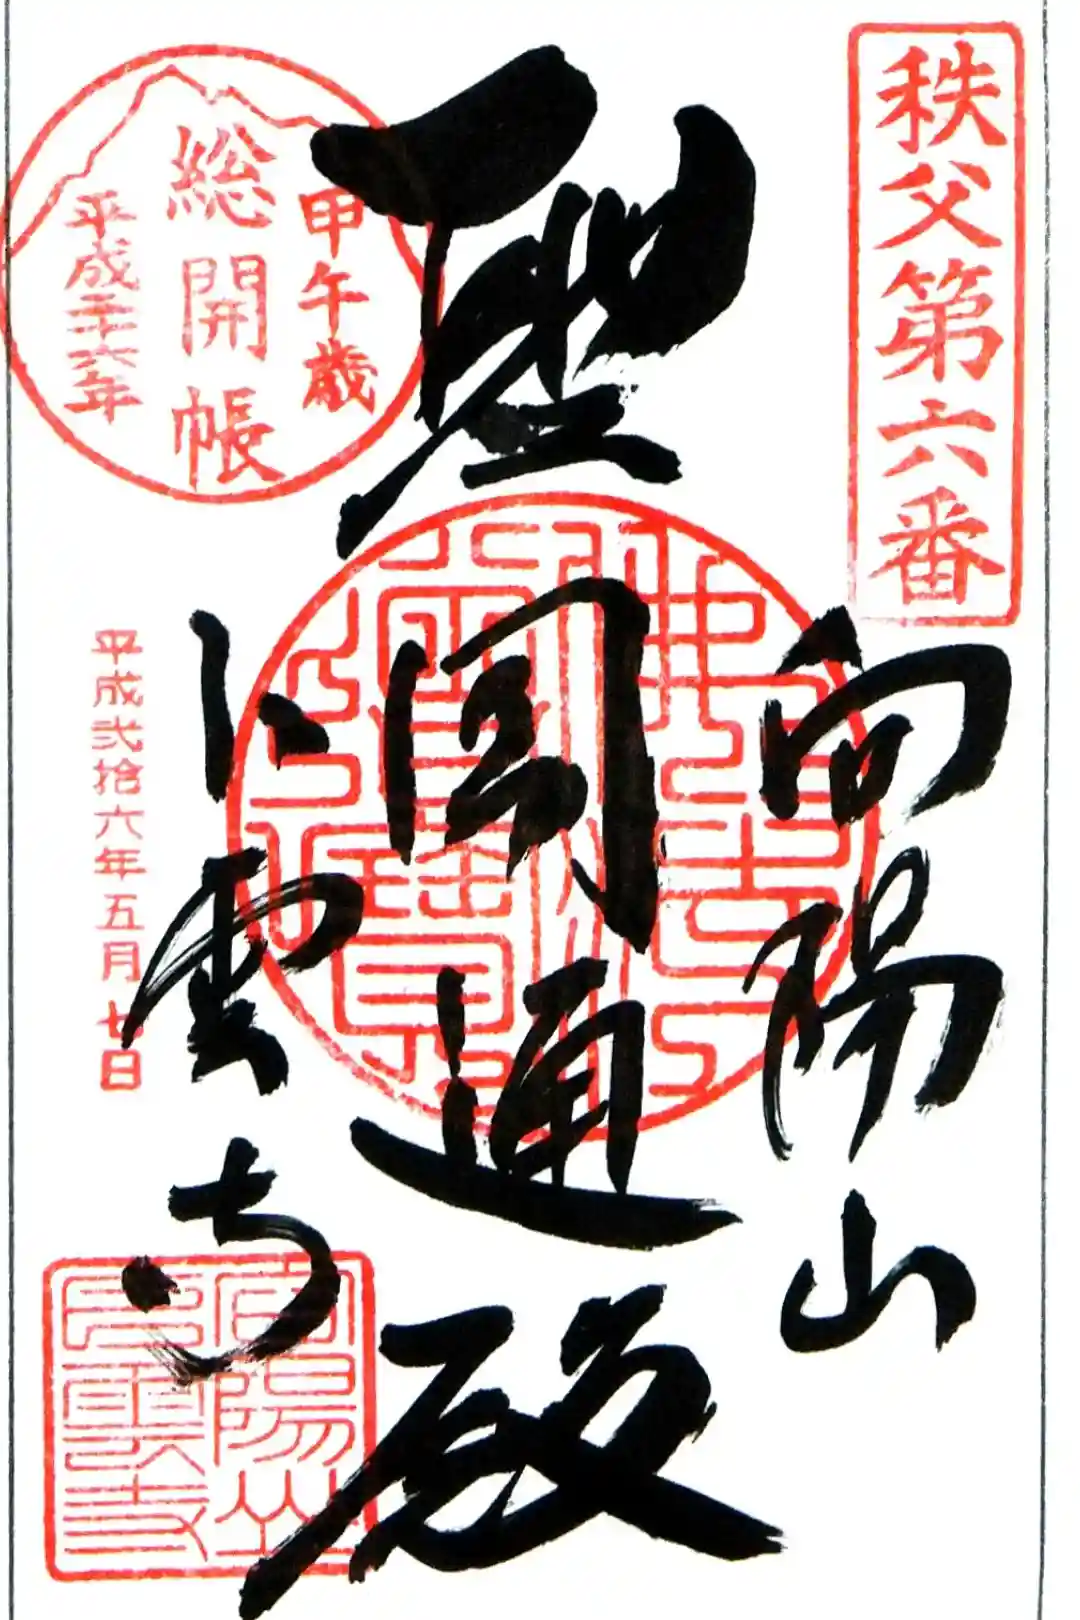 秩父第六番
向陽山
聖圓通殿
卜雲寺
甲午歳
総開帳
平成二十六年
平成弐拾六年五月七日
向陽山
卜雲寺